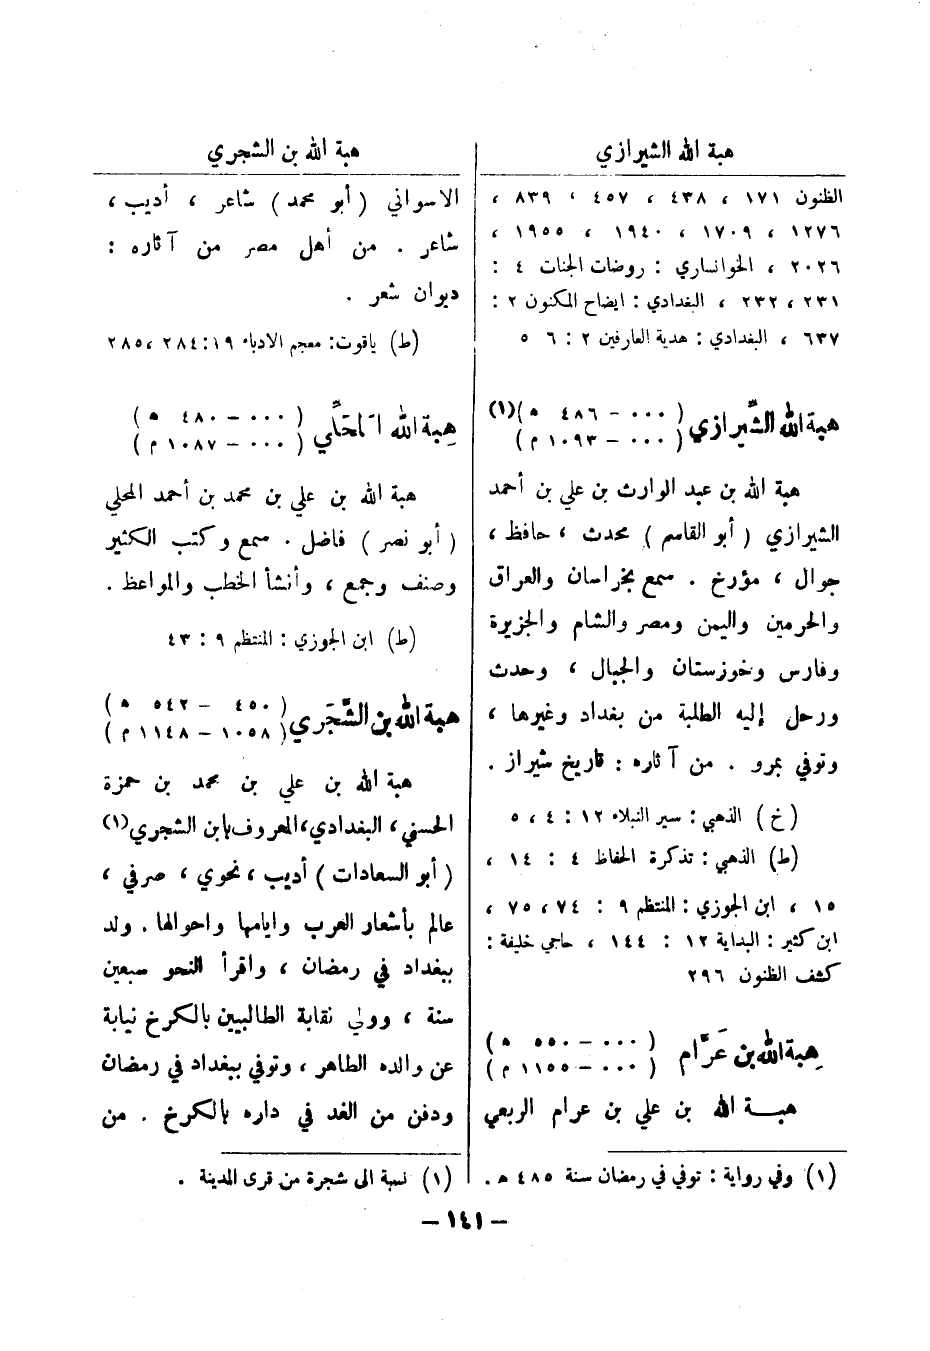 هبة الله الشيرازي
الظنون ١٧١ ، ٤٣٨ ، ٤٥٧ ، ٨٣٩ ،
١٢٧٦ ، ١٧٠٩ ، ١٩٤٠ ، ١٩٥٥ ،
٢٠٢٦ ، الخوانساري : روضات الجنات ٤ :
٢٣١ ، ٢٣٢ ، البغدادي : ايضاح المكنون ٢ :
٦٣٧ ، البغدادي : هدية العارفين ٢ : ٥٠٦
هبة الله الشِّيرازي ( ٠٠٠ – ٤٨٦ ه )(١)
( ٠٠٠ – ١٠٩٣ م )
هبة الله بن عبد الوارث بن علي بن أحمد
الشيرازي ( أبو القاسم ) محدث ، حافظ ،
جوال ، مؤرخ . سمع بخراسان والعراق
والحرمين واليمن ومصر والشام والجزيرة
وفارس وخوزستان والجبال ، وحدث
ورحل إليه الطلبة من بغداد وغيرها ،
وتوفي بمرو . من آثاره : تاريخ شيراز .
(خ) الذهبي : سير النبلاء ١٢ : ٤ ، ٥
(ط) الذهبي : تذكرة الحفاظ ٤ : ١٤ ،
١٥ ، ابن الجوزي : المنتظم ٩ : ٧٤ ، ٧٥ ،
ابن كثير : البداية ١٢ : ١٤٤ ، حاجي خليفة :
كشف الظنون ٢٩٦
هِبة الله بن عَرَّام ( ٠٠٠ – ٥٥٠ ه )
( ٠٠٠ – ١١٥٥ م )
هبـــة الله بن علي بن عرام الربعي
(١) وفي رواية : توفي في رمضان سنة ٤٨٥ ه .
هبة الله بن الشجري
الاسواني ( أبو محمد ) شاعر ، أديب ،
شاعر . من أهل مصر من آثاره :
ديوان شعر .
(ط) ياقوت : معجم الادباء ١٩ : ٢٨٤ ، ٢٨٥
هِبة الله المَحَلِّي ( ٠٠٠ – ٤٨٠ ه )
( ٠٠٠ – ١٠٨٧ م )
هبة الله بن علي بن محمد بن أحمد المحلي
( أبو نصر ) فاضل . سمع وكتب الكثير
وصنف وجمع ، وأنشأ الخطب والمواعظ .
(ط) ابن الجوزي : المنتظم ٩ : ٤٣
هبة الله بن الشَّجَري ( ٤٥٠ – ٥٤٢ ه )
( ١٠٥٨ – ١١٤٨ م )
هبة الله بن علي بن محمد بن حمزة
الحسني ، البغدادي ، المعروف بابن الشجري (١)
( أبو السعادات ) أديب ، نحوي ، صرفي ،
عالم بأشعار العرب وايامها واحوالها . ولد
ببغداد في رمضان ، واقرأ النحو سبعين
سنة ، وولي نقابة الطالبيين بالكرخ نيابة
عن والده الطاهر ، وتوفي ببغداد في رمضان
ودفن من الغد في داره بالكرخ . من
(١) نسبة الى شجرة من قرى المدينة .
– ١٤١ –